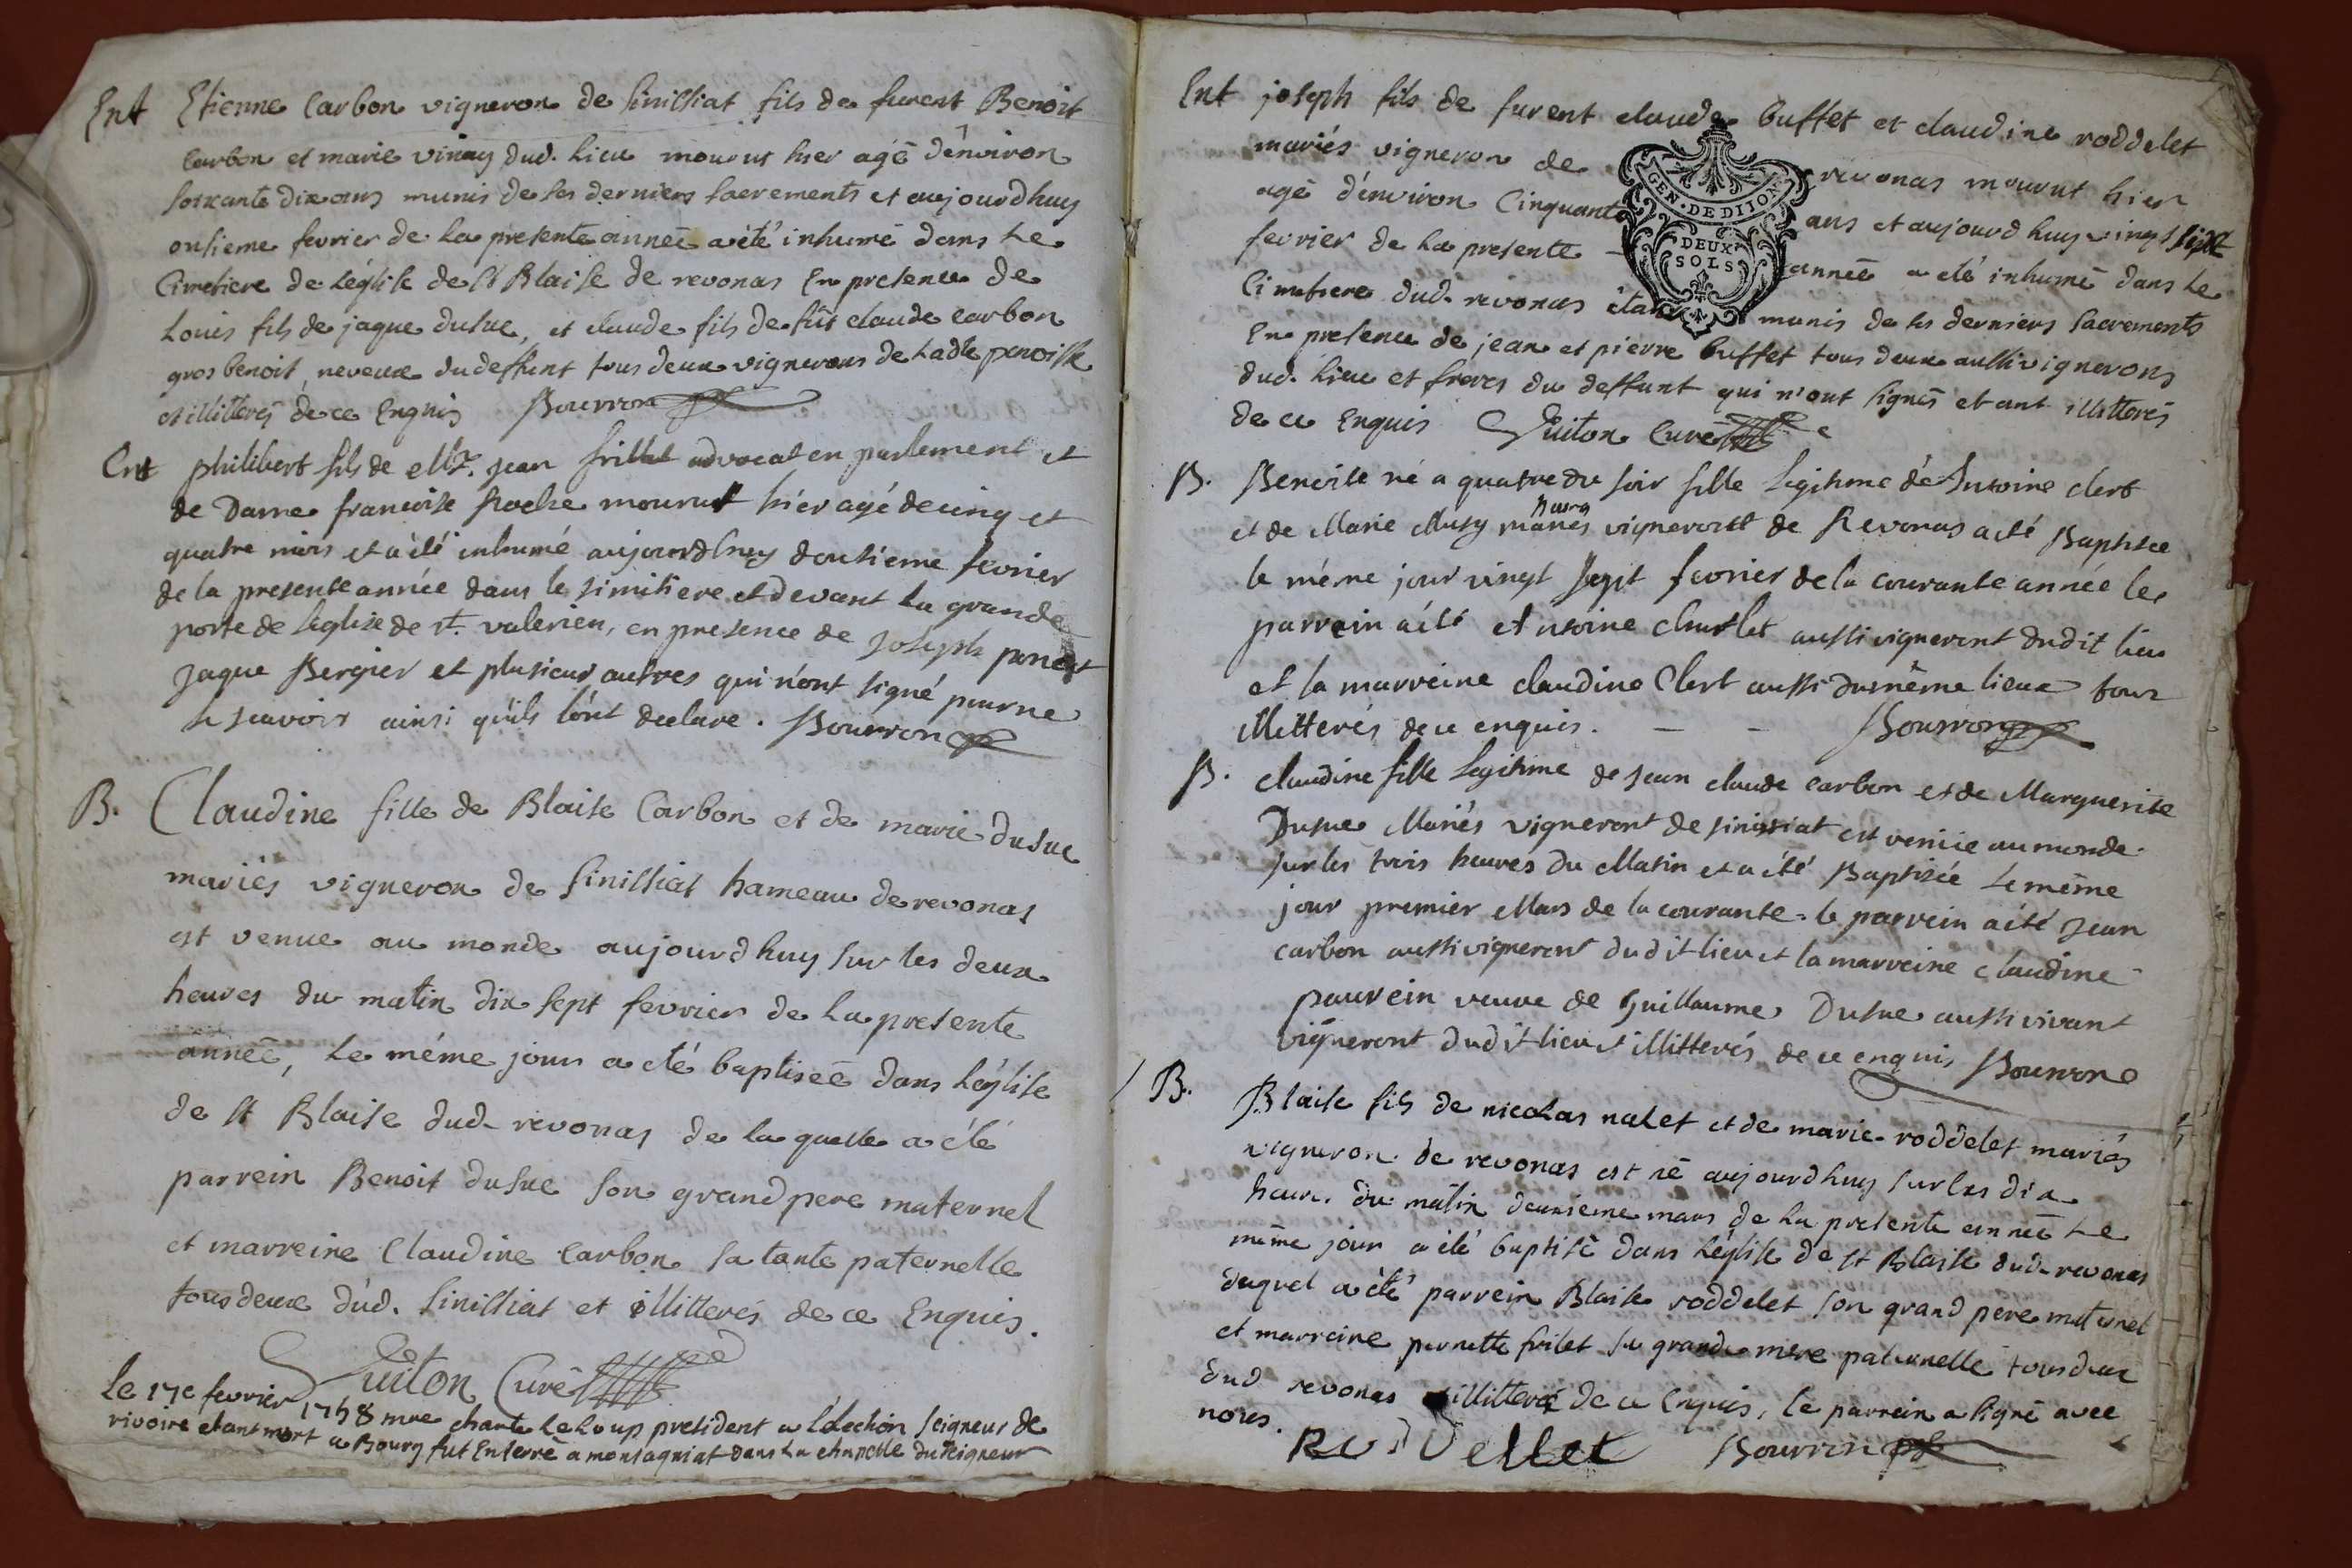 Ent Etienne Carbon vigneron de Sinissiat fils de furent Benoit
Carbon et marie vinay dud. lieu mourut hier agé d'environ
soixante dix ans munis de ses derniers sacrements et aujourdhuy
onsieme fevrier de la presente année a été inhumé dans le
Cimetiere de l'église de St Blaise de revonas En presence de
Louis fils de jaque dusuc, et claude fils de fût claude carbon
gros benoit, neveux du deffunt tous deux vignerons de ladte paroisse
et illitterés de ce Enquis Bourron
Ent philibert fils de Mr. jean frillet advocat en parlement et
de Dame francoise Roche mourut hiér agé de cinq et
quatre mois et a été inhumé aujourdhuy dousieme fevrier
de la presente année dans le simitiere et devant la grande
porte de l'eglise de st. valerien, en presence de Joseph
jaque Bergier et plusieur autres qui n'ont signé pour ne
le scavoir ainsi qu'ils l'ont declare. Bourron
B. Claudine fille de Blaise Carbon et de marie dusuc
mariés vigneron de Sinissiat hameau de revonas
est venue au monde aujourdhuy sur les deux
heures du matin dix sept fevrier de la presente
année, le méme jour a eté baptisée dans l'église
de St Blaise dud. revonas de la quelle a été
parrein Benoit dusuc son grand pere maternel
et marreine Claudine Carbon sa tante paternelle
tous deux dud. Sinissiat et illitterés de ce Enquis.
Guiton Curé
Le 17e fevrier 1758 mre charte Le Loup president a l'élection seigneur de
rivoire etant mort a Bourg fut Enterré a montagniat dans la chapelle du seigneur
Ent joseph fils de furent claude buffet et claudine roddelet
mariés vigneron de revonas mourut hier
agé d'environ Cinquante ans et aujourdhuy vingt sept
fevrier de la presente - année a eté inhumé dans le
Cimetiere dud. revonas étant munis de ses derniers sacrements
En presence de jean et pierre buffet tous deux aussi vignerons
dud. lieu et freres du deffunt qui n'ont signés etant illitterés
de ce Enquis Guiton Curé
GEN · DE DIJON
DEUX
SOLS
B. Benoite né a quatre du soir fille legitime dé Antoine clert
et de Marie Musy mariés vigneront de Revonas a été Baptisée
le méme jour vingt sept fevrier de la courante année le
parrein a été Antoine Charlet aussi vigneront dudit lieu
et la marreine claudine Clert aussi du même lieux tous
illitterés de ce enquis. - - Bourron
B. claudine fille legitime de jean claude carbon et de Marguerite
Dusuc Mariés vigneront de sinissiat est venüe au monde
sur les trois heures du Matin et a été Baptisée le méme
jour premier Mars de la courante - le parrein a été Jean
carbon aussi vigneront dudit lieu et la marreine claudine
pauvein veuve de Guillaume Dusuc aussi vivant
vigneront dudit lieu et illitterés de ce enquis Bourron
B. Blaise fils de nicolas nalet et de marie roddelet mariés
vigneron de revonas est né aujourdhuy sur les dix
heures du matin deuxieme mars de la presente année le
même jour a été baptisé dans l'église de St Blaise dud. revonas
duquel a été parrein Blaise roddelet son grand pere maternel
et marreine pernette frilet sa grande mere paternelle tous deux
dud revonas illitteré de ce Enquis, le parrein a signé avec
nous. Roddellet Bourron